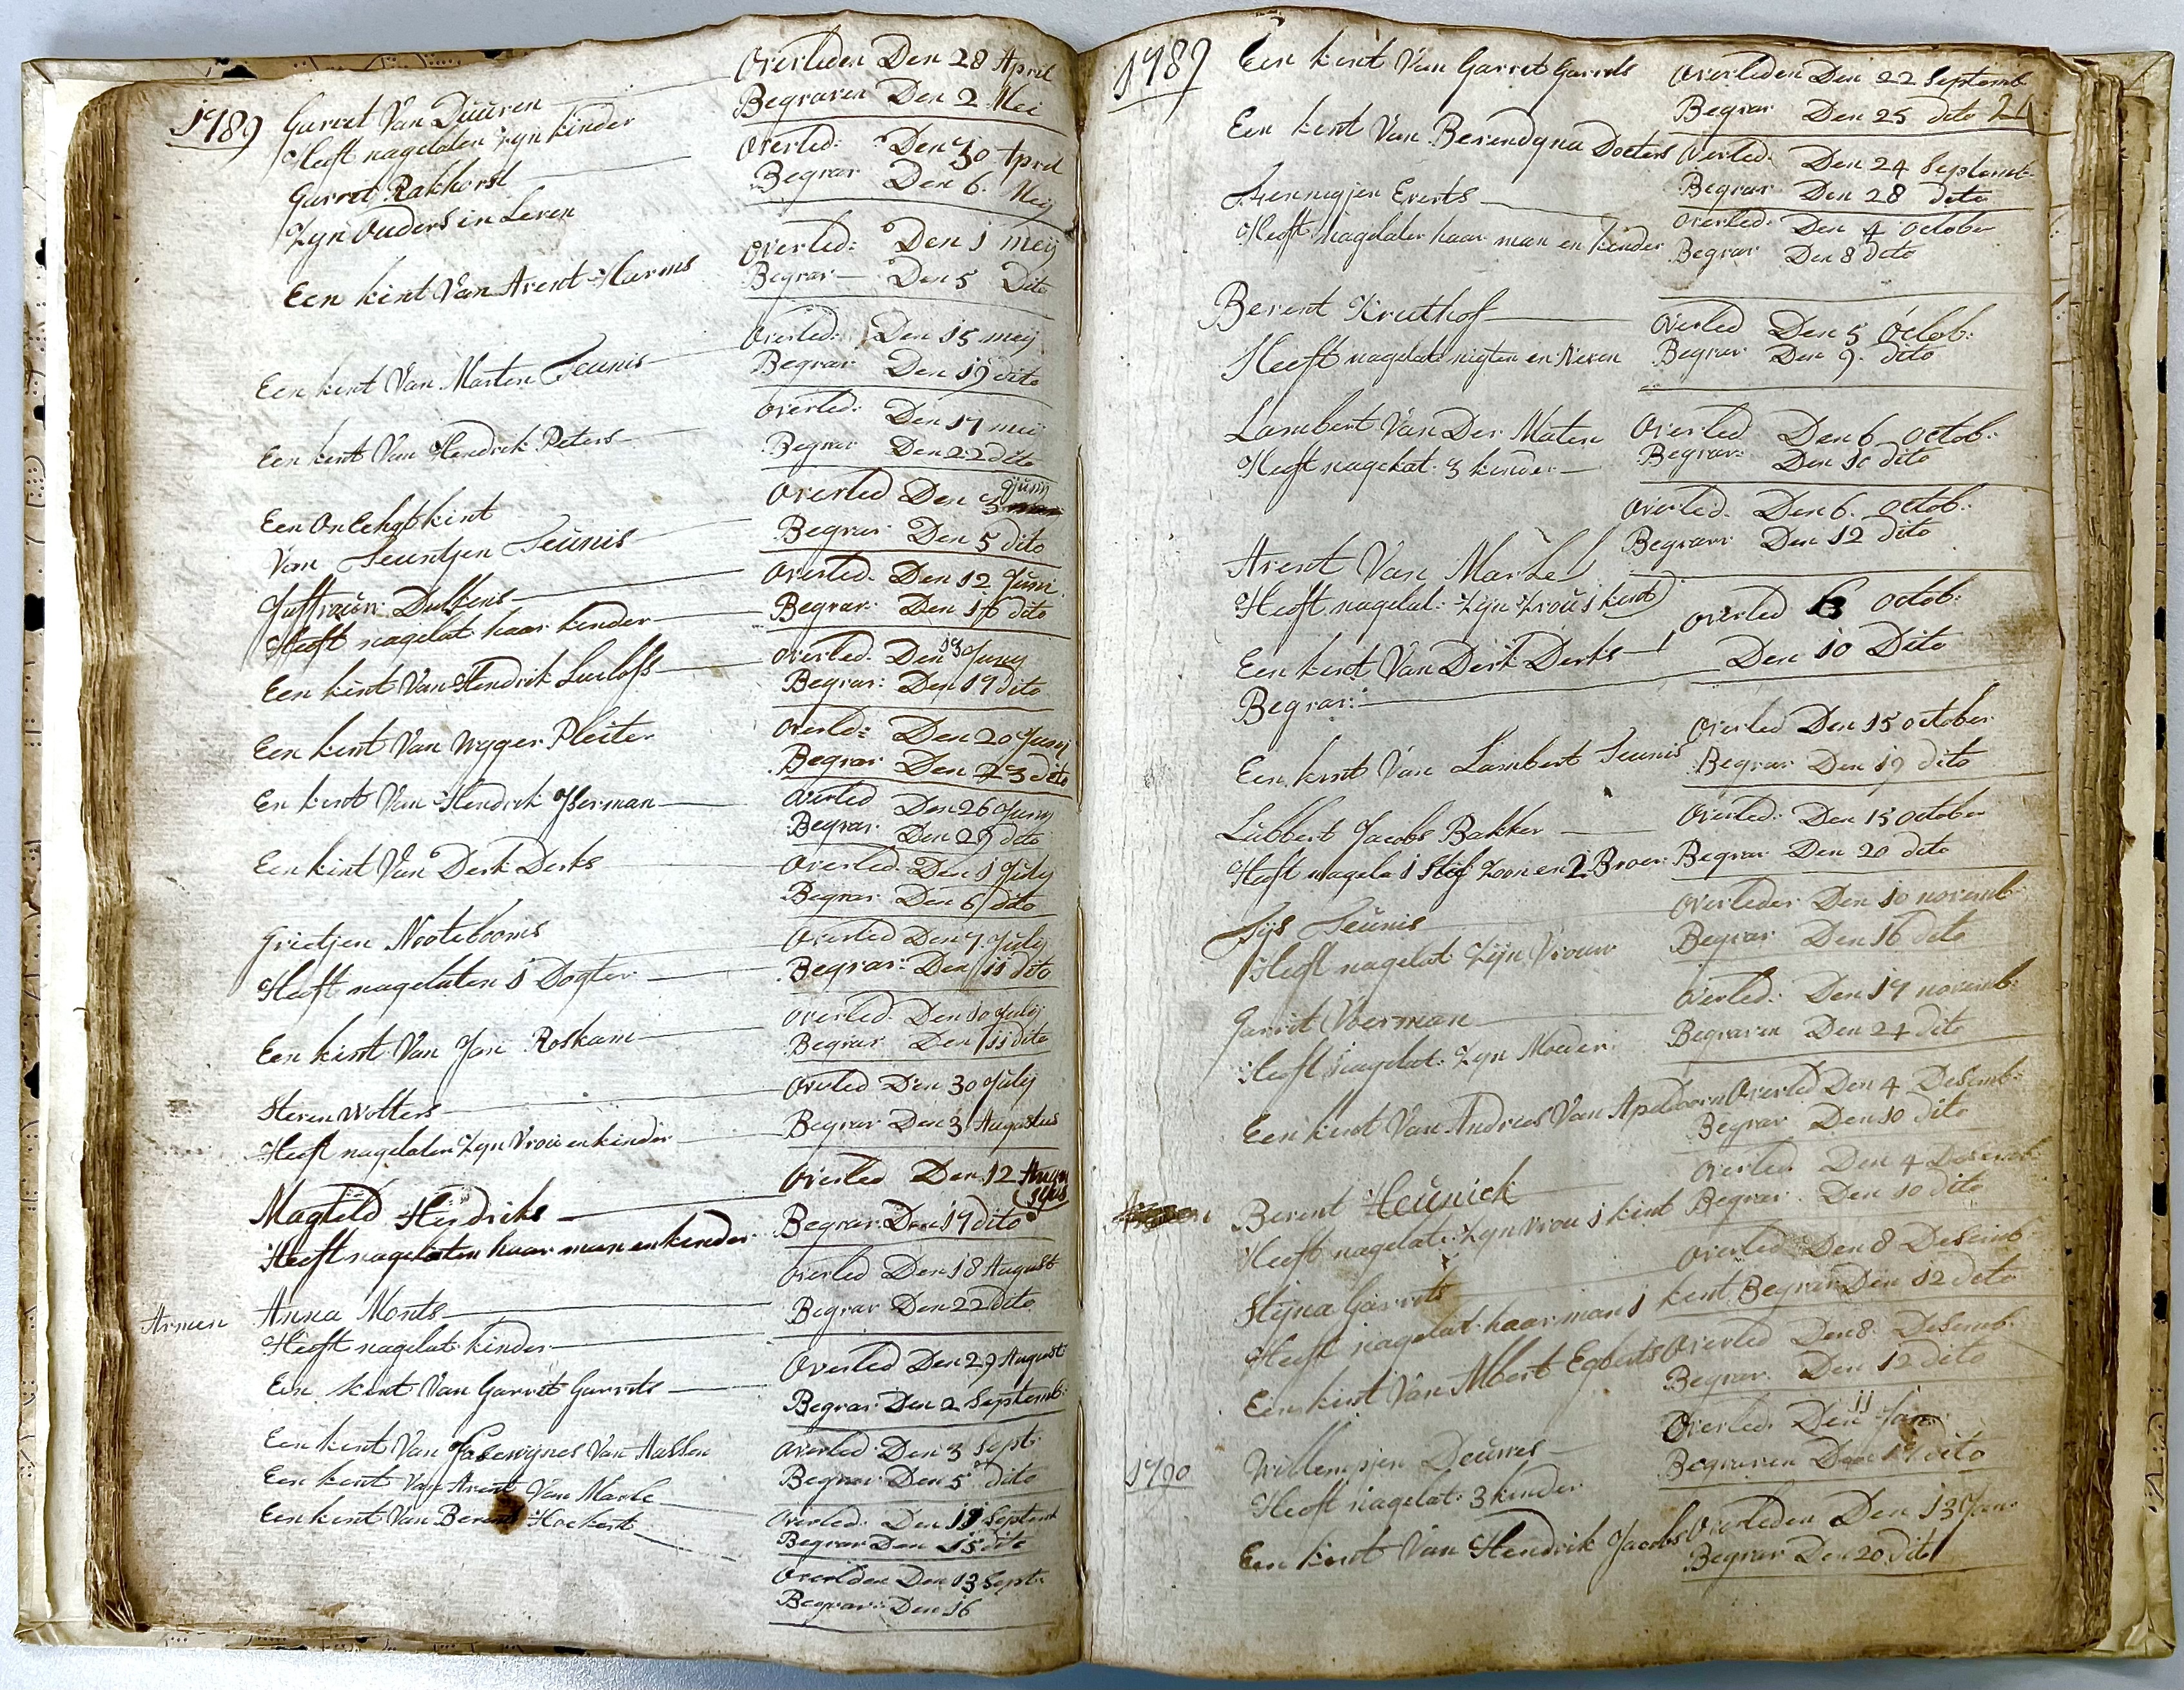 1789 Garret Van Duuren Overleden Den 28 April
Heeft nagelaten Zyn kinder Begraven Den 2 Mei
Garrit Rakhorst Overled: Den 30 April
Zyn Ouders in Leven Begrav Den 6. Meij
Een kint Van Arent Harms Overled: Den 1 meij
Begrav Den 5 Dito
Een kint Van Marten Teunis Overled: Den 15 meij
Begrav Den 19 dito
Een kint Van Hendrik Peters Overled: Den 17 mei
Begrav Den 22 dito
Een On Echgt kint Overled Den 3 Junij
Van Teuntjen Teunis Begrav Den 5 dito
Juffrouw Dulkens Overled. Den 12 Juni
Heeft nagelat haar kinder Begrav: Den 16 dito
Een kint Van Hendrik Luelofs Overled. Den 13 Juny
Begrav: Den 17 dito
Een kint Van Wyger Pleiter Overled: Den 20 Junij
Begrav Den 23 dito
En kint Van Hendrik Ysserman Overled Den 26 Juny
Begrav Den 29 dito
Een kint Van Derk Derks Overled. Den 1 July
Begrav Den 6 dito
Grietjen Notebooms Overled Den 7 July
Heeft nagelaten 1 Dogter Begrav: Den 11 dito
Een kint Van Jan Roskam Overled. Den 10 July
Begrav Den 11 dito
Steven Wolters Overled Den 30 July
Heeft nagelaten Zyn Vrou en kinder Begrav Den 3 Augustus
Magteld Hendriks Overled Den 12 Augustus
Heeft nagelaten haar man en kinder Begrav: Den 17 dito
Armen Anna Monts Overled Den 18 August
Heeft nagelat kinder Begrav Den 22 dito
Een kint Van Garrit Garrits Overled Den 29 August
Begrav Den 2 Septemb:
Een kint Van Van Hassen Overled: Den 3 Sept:
Begrav Den 5 dito
Een kint Van Arent Van Marle Overled: Den 11 Septemb
Begrav Den 15 dito
Een kint Van Berent Hoekert Overleden Den 13 Sept:
Begrav: Den 16
1789 Een kint Van Garret Garrets Overleden Den 22 Septemb
Begrav Den 25 dito 21
Een kint Van Berendyna Docters Overled. Den 24 Septemb:
Begrav Den 28 dito
Hennigjen Everts Overled: Den 4 October
Heeft nagelaten haar man en kinder Begrav Den 8 dito
Berent Kruthof Overled Den 5 Octob:
Heeft nagelat nigten en Neven Begrav Den 9 dito
Lambert Van Der Maten Overled Den 6 octob:
Heeft nagelat: 3 kinder Begrav: Den 10 dito
Arent Van Marle Overled. Den 6. octob:
Heeft nagelat: Zyn Vrou 1 kint Begrav Den 12 dito
Een kint Van Derk Derks Overled 6 octob:
Begrav: Den 10 Dito
Een kint Van Lambert Teunis Overled Den 15 october
Begrav Den 19 dito
Lubbert Jacobs Bakker Overled: Den 15 october
Heeft nagela 1 Stif Zoon en 2 Broer Begrav Den 20 dito
Tijs Teunis Overleden Den 10 novemb
Heeft nagelat Zijn Vrouw Begrav Den 16 dito
Garrit Voerman Overled: Den 17 novemb:
Heeft nagelat: Zyn Moeder: Begraven Den 24 dito
Een kint Van Andries Van Apeldoorn Overled Den 4 Desemb:
Begrav Den 10 dito
Berent Heunick Overled. Den 4 Desemb:
Heeft nagelat: Zyn Vrou 1 kint Begrav: Den 10 dito
Stijna Garrits Overled Den 8 Desemb
Heeft nagelat: haar man 1 kint Begrav Den 12 dito
Een kint Van Albert Egberts Overled Den 8. Desemb:
Begrav Den 12 dito
1790 Willempjen Deuwes Overled: Den 11 Jan:
Heeft nagelat: 3 kinder Begraven Den 17 dito
Een kint Van Hendrik Jacobs Overleden Den 13 Jan:
Begrav Den 20 dito